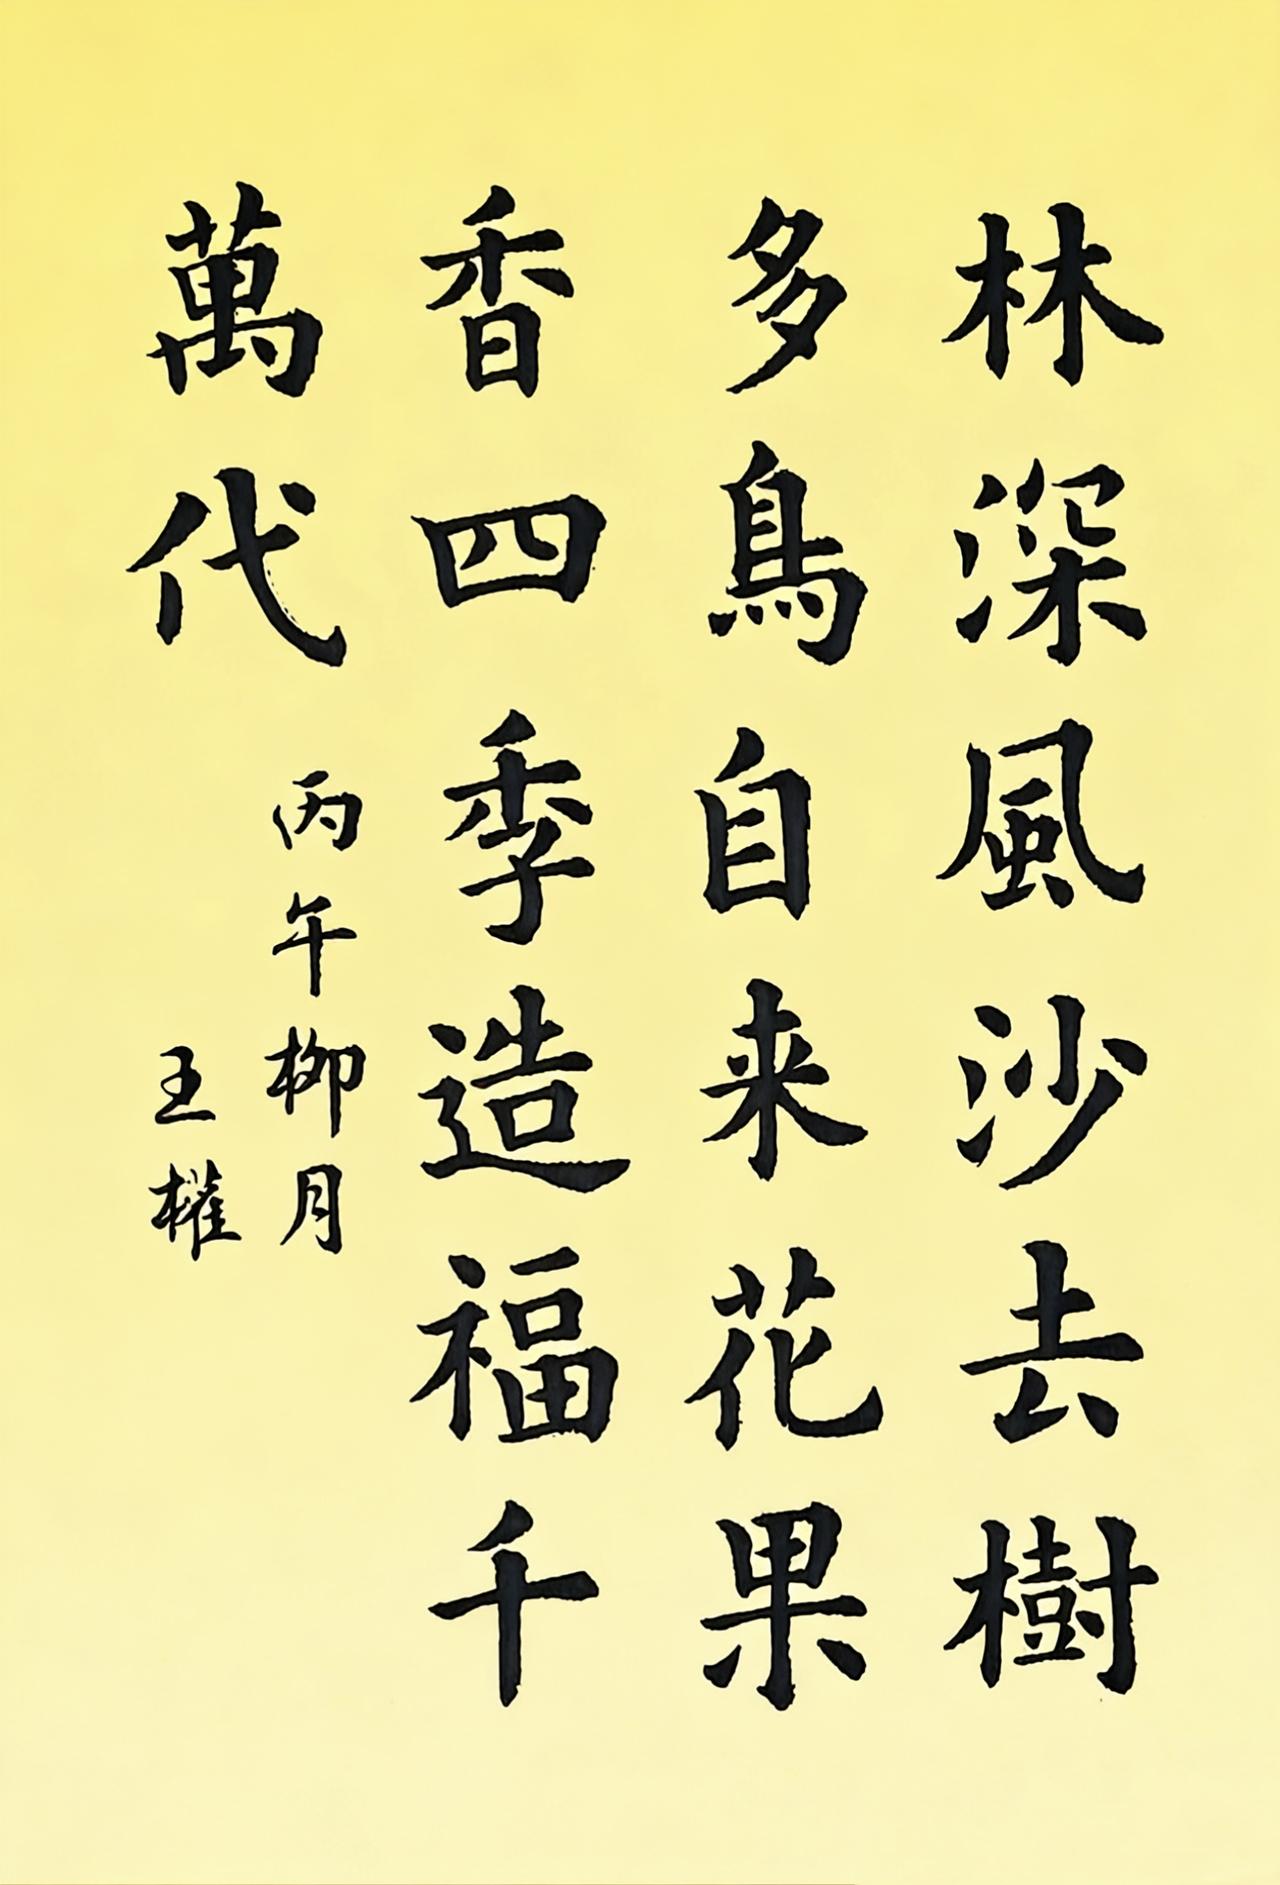 林深風沙去樹
多鳥自来花果
香四季造福千
萬代
丙午柳月
王權